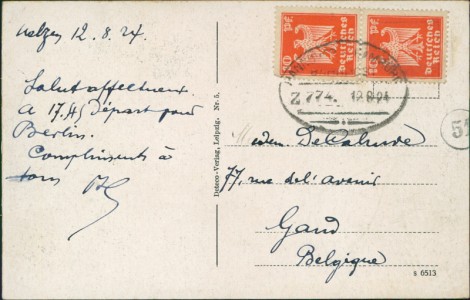 Uelzen 12.8.24.
Salut affectueux
A 17.45 Départ pour
Berlin.
Compliments à
tous
Deteco-Verlag, Leipzig. Nr. 5.
10 Pf. Deutsches Reich
Deutsches Reich
Z 774. 12.8.24
77, rue de l'avenir
Gand
Belgique
s 6513